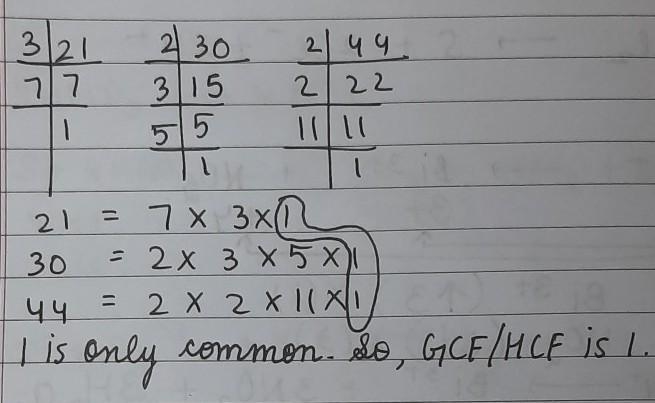 3 21 2 30 2 44
7 7 3 15 2 22
1 5 5 11 11
1 1
21 = 7 × 3 × 1
30 = 2 × 3 × 5 × 1
44 = 2 × 2 × 11 × 1
1 is only common. So, GCF/HCF is 1.